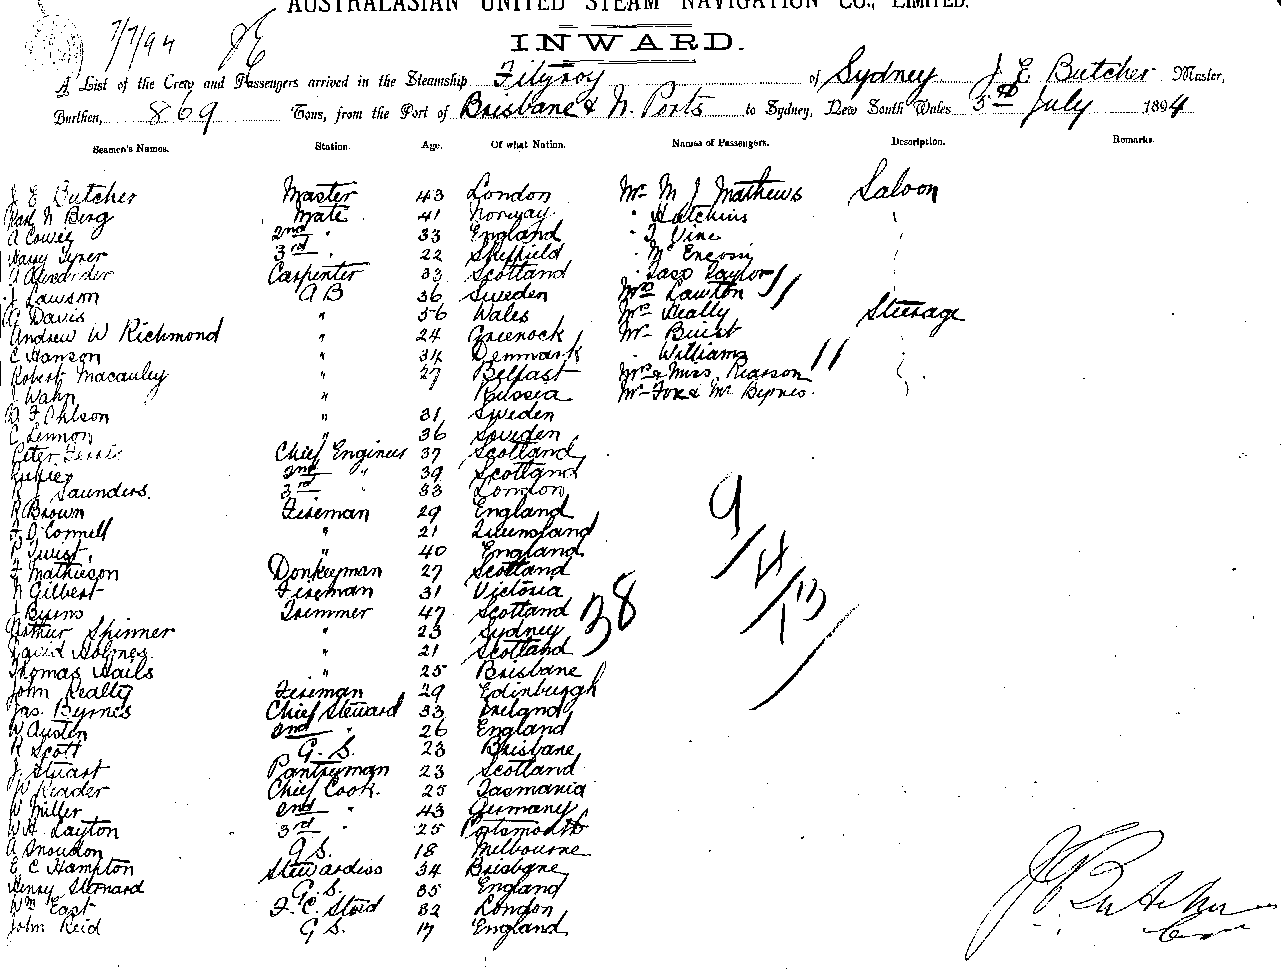 AUSTRALASIAN UNITED STEAM NAVIGATION CO., LIMITED.
7/7/94
INWARD.
A List of the Crew and Passengers arrived in the Steamship Fitzroy of Sydney J E Butcher Master,
Burthen, 869 Tons, from the Port of Brisbane & N. Ports to Sydney, New South Wales 5th July 1894
Seamen's Names. Station. Age. Of what Nation. Names of Passengers. Description. Remarks.
J E Butcher Master 43 London Mr M J Mathews Saloon
N Berg Mate 41 Norway " Hutchins
A Cowie 2nd " 33 England " J Vine
Harry Tyrer 3rd " 22 Sheffield
A Alexander Carpenter 33 Scotland Taylor
J Lawson A B 36 Sweden Mrs Lawton //
G Davis " 56 Wales Mr Really Steerage
Andrew W Richmond " 24 Greenock Mr Buist
C Hanson " 34 Denmark " Williams //
Robert Macauley " 27 Belfast Mrs & Miss Pearson
J Wahn " Russia Mr Fox & Mr Byrnes.
F Ohlson " 31 Sweden
C Lennon " 36 Sweden
Peter Chief Engineer 37 Scotland
2nd " 39 Scotland
R J Saunders. 3rd " 33 London
R Brown Fireman 29 England
J O'Connell " 21 Queensland
P Twist. " 40 England
J Mathieson Donkeyman 27 Scotland
N Gilbert Fireman 31 Victoria
J Byrns Trimmer 47 Scotland
Arthur Skinner " 23 Sydney
David Holmes. " 21 Scotland
Thomas Hails " 25 Brisbane
John Really Fireman 29 Edinburgh
Jas. Byrnes Chief Steward 33 Ireland
W Austen 2nd " 26 England
R Scott G. S. 23 Brisbane
J. Stuart Pantryman 23 Scotland
W Reader Chief Cook. 25 Tasmania
W Miller 2nd " 43 Germany
W H. Layton 3rd " 25 Portsmouth
A Snowdon G S. 18 Melbourne
E C Hampton Stewardess 34 Brisbane
Henry G. S. 35 England
Wm East F. C. Stwd 32 London
John Reid G S. 17 England
38
9/4/13/
J E Butcher